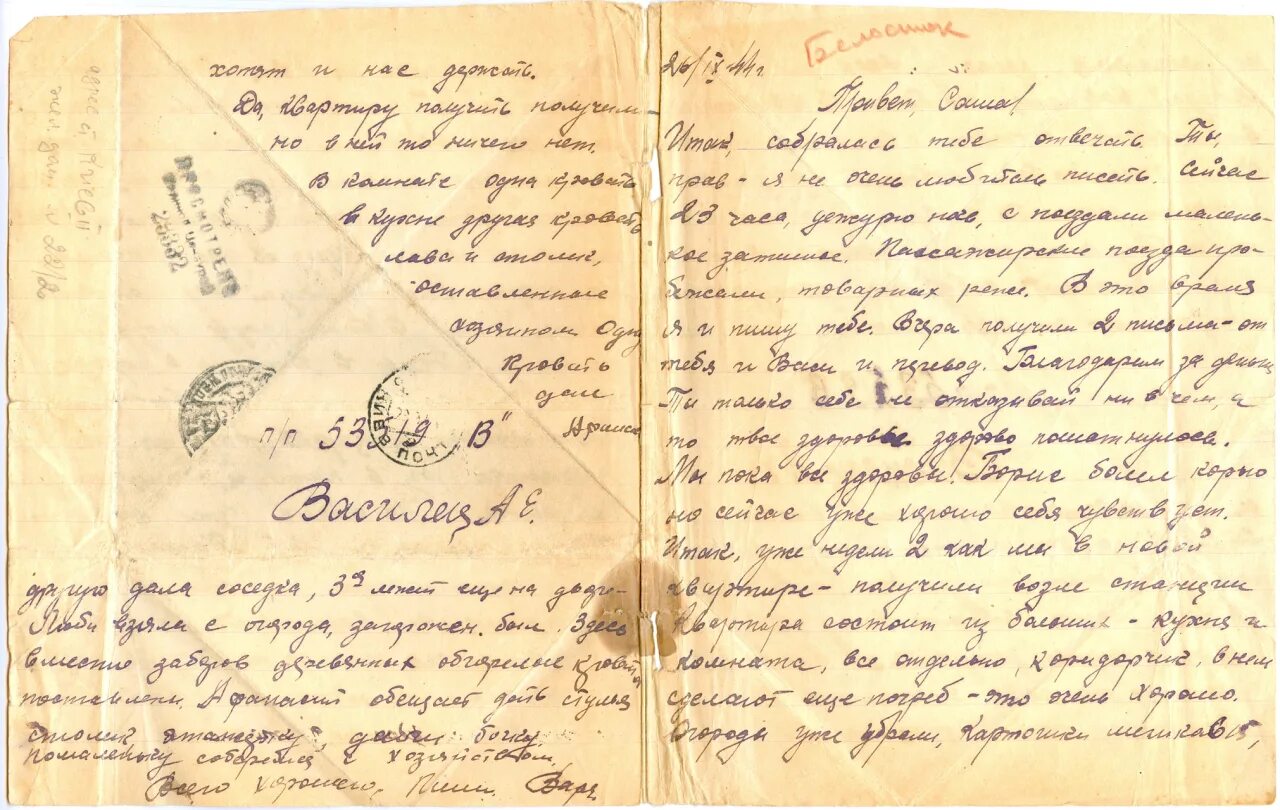 Белосток
26/IX 44 г.
Привет, Саша!
Итак, собралась тебе отвечать. Ты,
прав - я не очень любитель писать. Сейчас
23 часа, дежурю, с поездами малень-
кое затишье. Пассажирские поезда про-
бежали, товарных реже. В это время
я и пишу тебе. Вчера получили 2 письма - от
тебя и Васи и перевод. Благодарим за деньги
Ты только себе не отказывай ни в чем, а
то твое здоровье здорово пошатнулось.
Мы пока все здоровы. Борис болел корью
но сейчас уже хорошо себя чувствует.
Итак, уже недели 2 как мы в новой
квартире - получили возле станции
Квартира состоит из больших - кухня и
комната, все отдельно, коридорчик, в нем
сделают еще погреб - это очень хорошо.
Огороды уже убрали, картошки мешков 15,
хотят и нас держать.
Да, квартиру получить получили
но в ней то ничего нет.
В комнате одна кровать
в кухне другая кровать
лава и столик,
оставленные
хозяином Одну
кровать
дал
Афанас
ПРОСМОТРЕНО
Военной Цензурой
25332
п/п 53 19 "В"
Василец А Е.
другую дала соседка, 3я лежит еще на дворе
Люба взяла с огорода, загорожен. был. Здесь
вместо заборов деревянных обгорелые кровати
поставлены. Афанасий обещает дать стулья
столик, бочку.
помаленьку соберемся с хозяйством.
Всего хорошего. Пиши. Варя